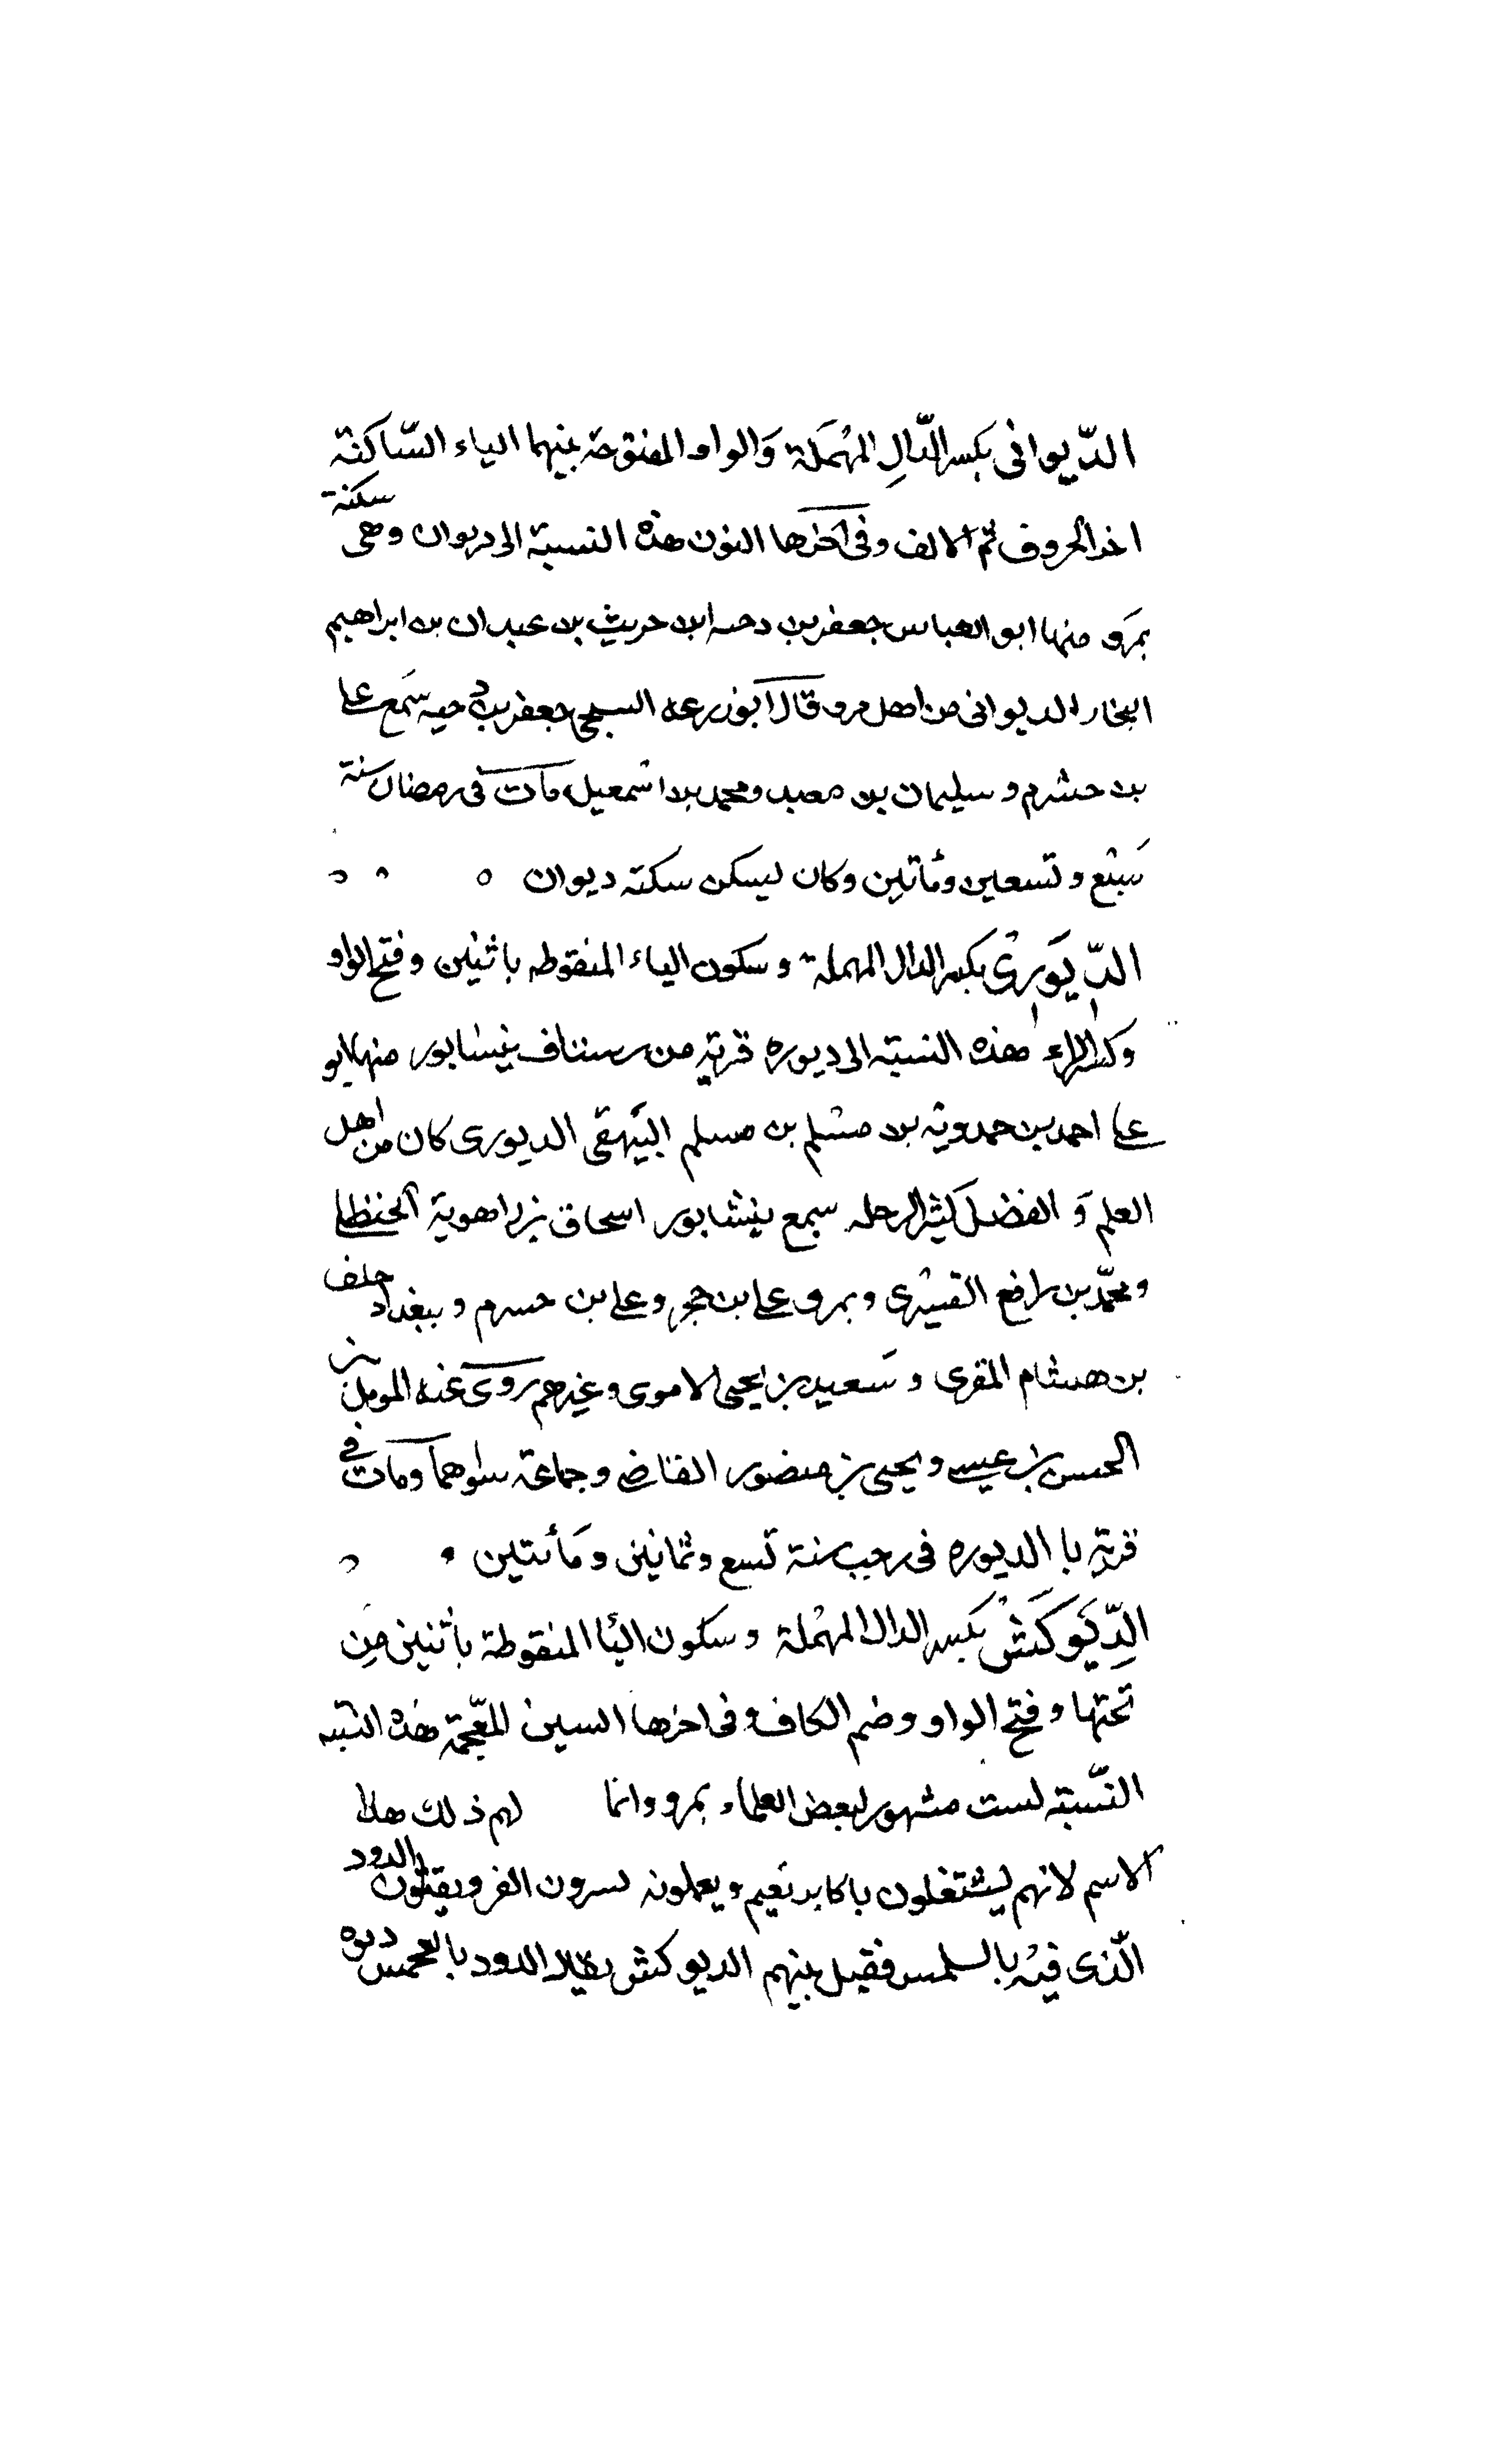 الدّيوانى بكسر الدّالِ المهُمَلة وَالواو المفتوحة بينهما الياء السّاكنة
اخر الحروف ثم الالف وفى آخرها النون هذه النسبة الى ديوان وهى سكنة
بمرو منها ابو العباس جعفر بن دحيه ابن حريث بن عبدان بن ابراهيم
البخار الديوانى من اهل مرو قال ابو زرعه السبحى جعفر بن دحيه سَمع على
بن حشرم و سليمان بن معبد ومحمد بن اسمعيل مات فى رمضان سنة
سَبْع و تسعين ومأتين وكان يسكن سكته ديوان
الدّيوَرىْ بكسر الدال المهملة و سكون الياء المنقوطه باثنين و فتح الواو
وكسر الراء هذه النسبته الى ديوره قرية من رستاق نيسابور منها ابو
على احمد بن حمدويه بن مسْلم بن مسلم البيَهقى الديورى كان من اهل
العلم وَ الفضل كثير الرحله سمع بنيشابور اسحاق بن راهوية الحنظلى
و محمّد بن رافع القشيْرى و بمرو على بن حجر و على بن حسرم و ببغداد خلف
بن هشام المقرى و سَعيد بن يحيى الاموى وغيرهم روى عنه المومل بن
الحسن بن عيسى و يحيى بن منصور القاضى و جماعة سواهما ومات فى
قرية با الديوره فى رجب سنة تسع و ثمانين و مَأتتين
الدِّيَوكَشْ بكسر الدال المهْملة و سكون اليْا المنقوطة بأثنين مِن
تحتها و فتح الواو و ضم الكاف وفى اخرها السين المعّجمة هذه النسبه
النّسبته لست مشهور لبعض العلماء بمرو وانما لهم ذلك هذا
الاسم لانهم ليشتغلون با كابر نعيم و يعملونه سرون الفر و يقتلون الدود
الّذى فيْه بالسلمس فقيل بينهم الديو كش يقال الدود بالعجمس ديوه